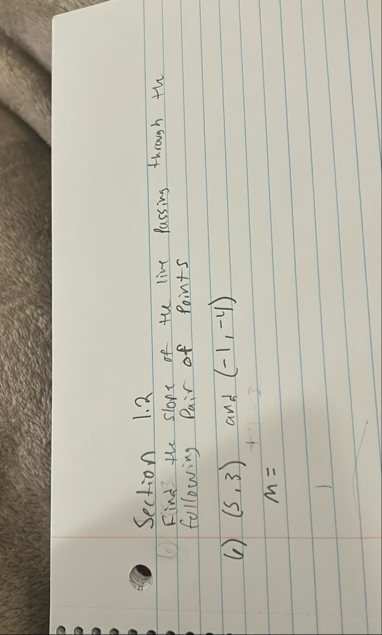 Section 1.2
Find the slope of the line passing through the
following Pair of Points
(5,3) and (-1,-4)
m=